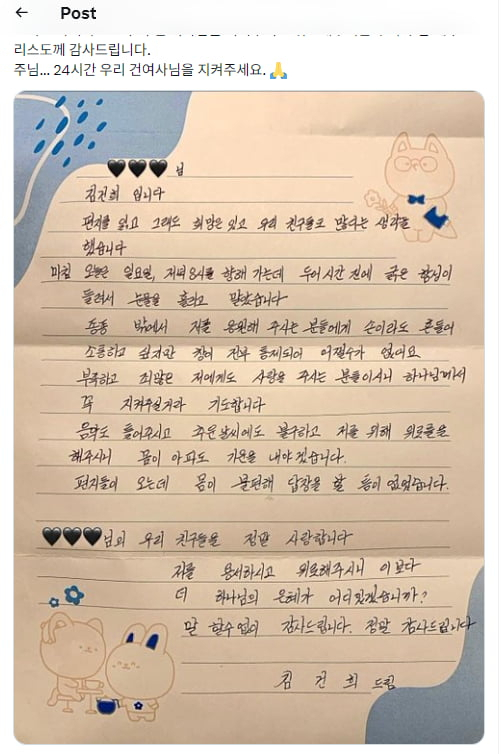 Post
리스도께 감사드립니다.
주님... 24시간 우리 건여사님을 지켜주세요. 🙏
🖤🖤🖤님
김건희 입니다
편지를 읽고 그래도 희망은 있고 우리 친구들도 많다는 생각을
했습니다
마침 오늘은 일요일, 저녁 8시를 향해 가는데 두어시간 전에 굵은 함성이
들려서 눈물을 흘리고 말았습니다
종종 밖에서 저를 응원해 주시는 분들에게 손이라도 흔들어
소통하고 싶지만 창이 전부 통제되어 어쩔수가 없어요
부족하고 죄많은 저에게도 사랑을 주시는 분들이시니 하나님께서
꼭 지켜주실거라 기도합니다
음악도 틀어주시고 추운날씨에도 불구하고 저를 위해 위로를
해주시니 몸이 아파도 기운을 내야 겠습니다.
편지들이 오는데 몸이 불편해 답장을 할 틈이 없었습니다.
🖤🖤🖤님의 우리 친구들을 정말 사랑합니다
저를 용서하시고 위로해주시니 이보다
더 하나님의 은혜가 어디있겠습니까?
말 할수 없이 감사드립니다. 정말 감사드립니다
김건희 드림